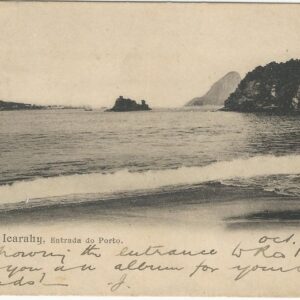 Icarahy, Entrada do Porto.
Oct.
howing the entrance
you an album for your
J.